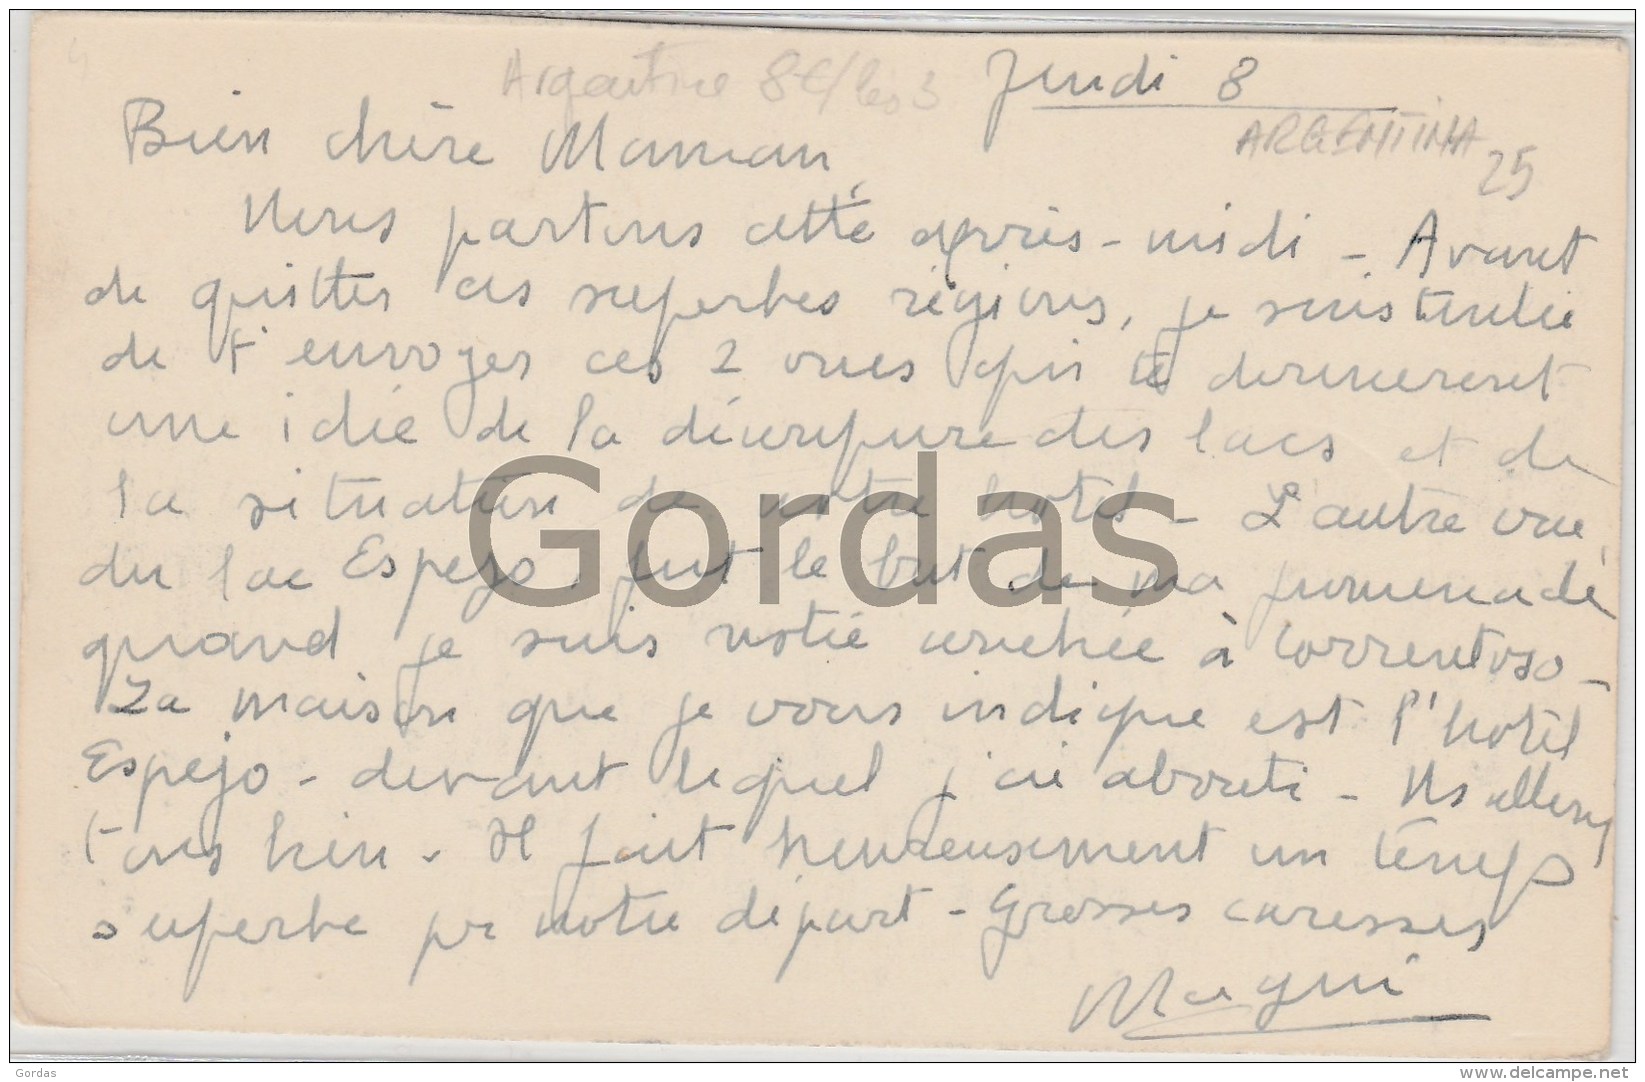 Argentine 8€/les 3
Jeudi 8
ARGENTINA
25
Bien chère Maman,
Nous partons cette après-midi - Avant
de quitter ces superbes régions, je suis tentée
de t'envoyer ces 2 vues qui te donneront
une idée de la découpure des lacs et de
la situation de notre hôtel - L'autre vue,
du lac Espejo, fut le but de ma promenade
quand je suis restée couchée à Correntoso -
La maison que je vous indique est l'hôtel
Espejo - devant lequel j'ai abouti - Ns allons
tous bien - Il fait heureusement un temps
superbe pr notre départ - Grosses caresses
Magui
Gordas
Gordas
www.delcampe.net